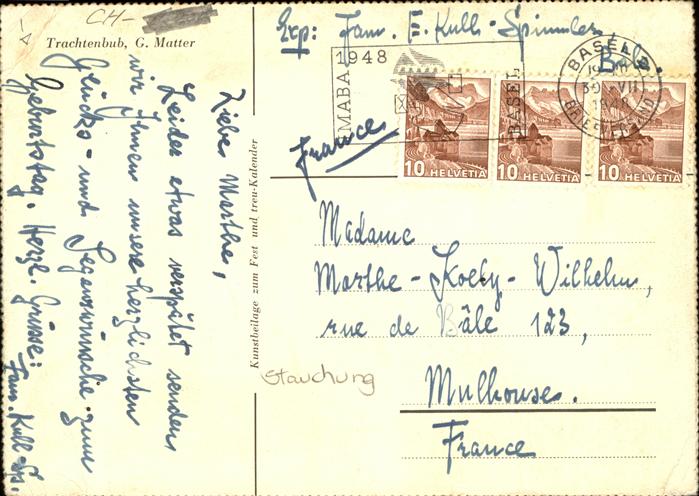 CH-
Trachtenbub, G. Matter
Liebe Marthe,
Leider etwas verspätet senden
wir Ihnen unsere herzlichsten
Glücks- und Segenswünsche zum
Geburtstag. Herzl. Grüsse:
Fam. Kull-Sp.
Kunstbeilage zum Fest und treu-Kalender
Exp: Fam. E. Kull-Spinnler
Bsl.
1948
IMABA
BASEL
BASEL
30 VII
1948
BRIEFVERSAND
10 HELVETIA
10 HELVETIA
10 HELVETIA
France
Madame
Marthe-Koely-Wilhelm,
rue de Bâle 123,
Mulhouse.
France
Stauchung